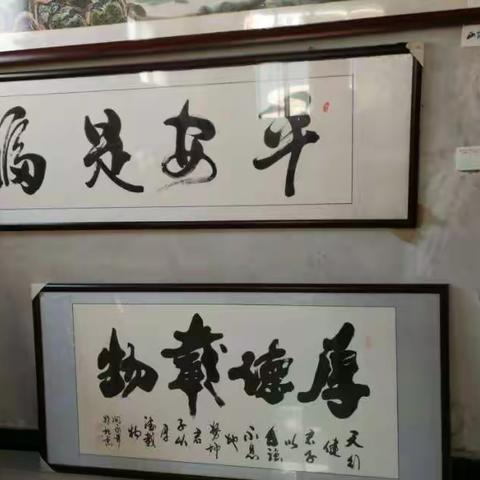 平安是福
厚德載物
天行
健
君子
以
自強
不息
地
勢坤
君
子以
厚
德載
物